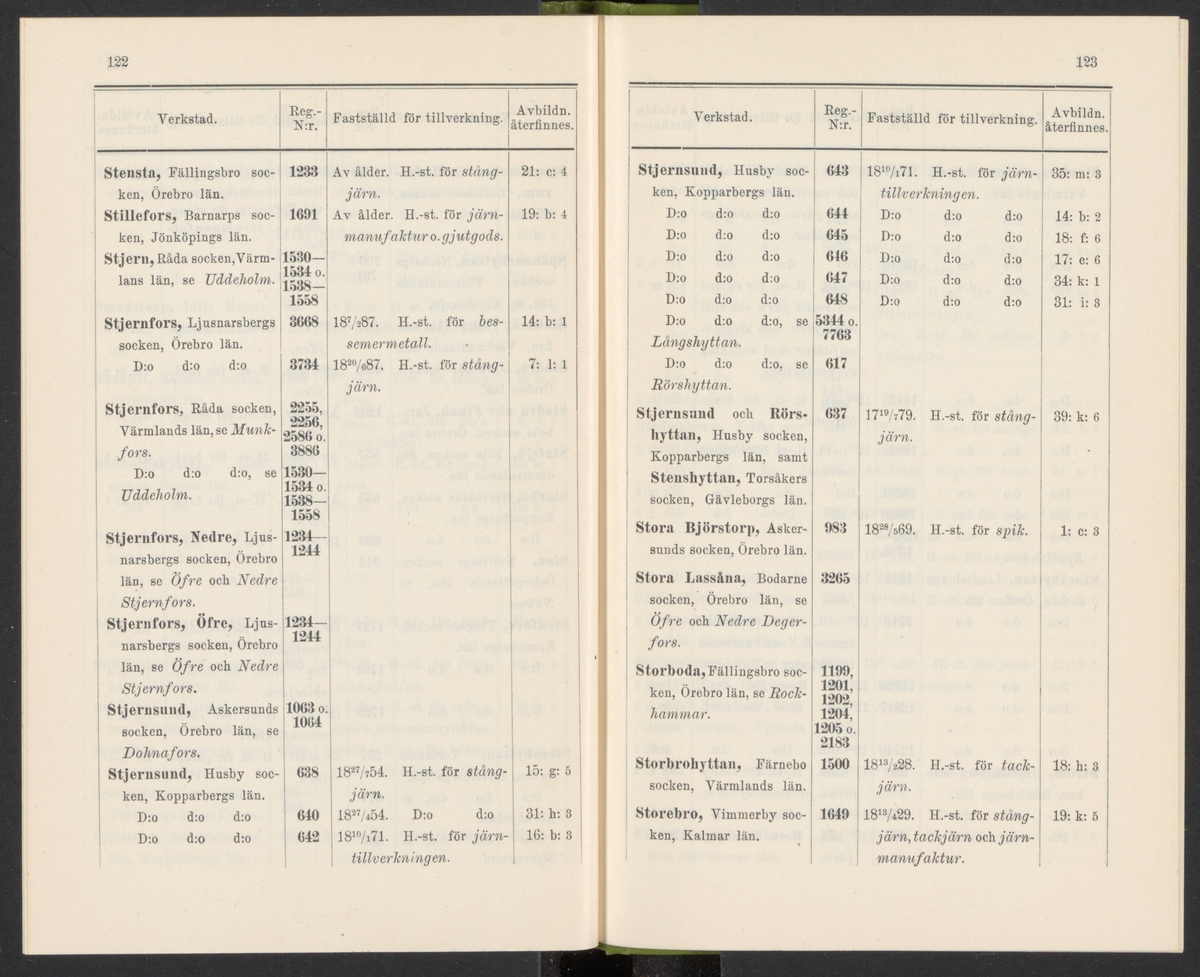 122
Verkstad. Reg.- N:r. Fastställd för tillverkning. Avbildn. återfinnes.
Stensta, Fällingsbro soc- 1233 Av ålder. H.-st. för stång- 21: c: 4
ken, Örebro län. järn.
Stillefors, Barnarps soc- 1691 Av ålder. H.-st. för järn- 19: b: 4
ken, Jönköpings län. manufaktur o. gjutgods.
Stjern, Råda socken, Värm- 1530—
lans län, se Uddeholm. 1534 o.
1538—
1558
Stjernfors, Ljusnarsbergs 3668 18⁷/₂87. H.-st. för bes- 14: b: 1
socken, Örebro län. semermetall.
D:o d:o d:o 3734 18²⁰/₆87. H.-st. för stång- 7: l: 1
järn.
Stjernfors, Råda socken, 2255,
Värmlands län, se Munk- 2256,
2586 o.
fors. 3886
D:o d:o d:o, se 1530—
Uddeholm. 1534 o.
1538—
1558
Stjernfors, Nedre, Ljus- 1234—
narsbergs socken, Örebro 1244
län, se Öfre och Nedre
Stjernfors.
Stjernfors, Öfre, Ljus- 1234—
narsbergs socken, Örebro 1244
län, se Öfre och Nedre
Stjernfors.
Stjernsund, Askersunds 1063 o.
socken, Örebro län, se 1064
Dohnafors.
Stjernsund, Husby soc- 638 18²⁷/₇54. H.-st. för stång- 15: g: 5
ken, Kopparbergs län. järn.
D:o d:o d:o 640 18²⁷/₄54. D:o d:o 31: h: 3
D:o d:o d:o 642 18¹⁰/₁71. H.-st. för järn- 16: b: 3
tillverkningen.
123
Verkstad. Reg.- N:r. Fastställd för tillverkning. Avbildn. återfinnes.
Stjernsund, Husby soc- 643 18¹⁰/₁71. H.-st. för järn- 35: m: 3
ken, Kopparbergs län. tillverkningen.
D:o d:o d:o 644 D:o d:o d:o 14: b: 2
D:o d:o d:o 645 D:o d:o d:o 18: f: 6
D:o d:o d:o 646 D:o d:o d:o 17: e: 6
D:o d:o d:o 647 D:o d:o d:o 34: k: 1
D:o d:o d:o 648 D:o d:o d:o 31: i: 3
D:o d:o d:o, se 5344 o.
Långshyttan. 7763
D:o d:o d:o, se 617
Rörshyttan.
Stjernsund och Rörs- 637 17¹⁹/₇79. H.-st. för stång- 39: k: 6
hyttan, Husby socken, järn.
Kopparbergs län, samt
Stenshyttan, Torsåkers
socken, Gävleborgs län.
Stora Björstorp, Asker- 983 18²⁸/₅69. H.-st. för spik. 1: c: 3
sunds socken, Örebro län.
Stora Lassåna, Bodarne 3265
socken, Örebro län, se
Öfre och Nedre Deger-
fors.
Storboda, Fällingsbro soc- 1199,
ken, Örebro län, se Rock- 1201,
1202,
hammar. 1204,
1205 o.
2183
Storbrohyttan, Färnebo 1500 18¹³/₂28. H.-st. för tack- 18: h: 3
socken, Värmlands län. järn.
Storebro, Vimmerby soc- 1649 18¹³/₄29. H.-st. för stång- 19: k: 5
ken, Kalmar län. järn, tackjärn och järn-
manufaktur.